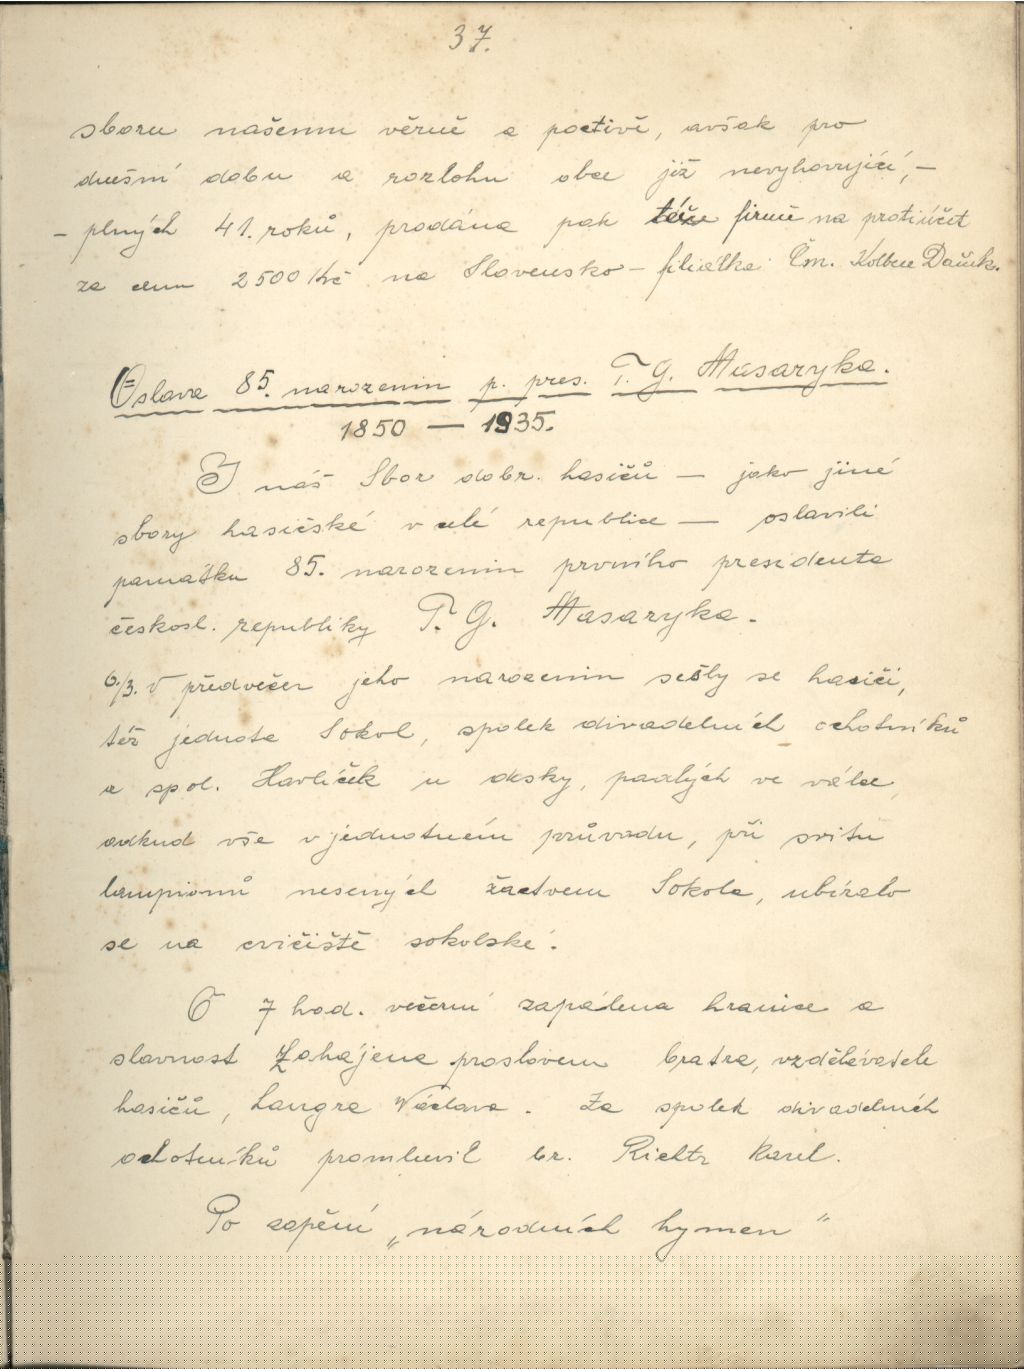 37.
sboru našemu věrně a poctivě, avšak pro
dnešní dobu a rozlohu obce již nevyhovující, –
– plných 41. roků, prodána pak téže firmě na protiúčet
za cenu 2500 Kč na Slovensko – filiálka Čm. Kolben Daněk.
Oslava 85. narozenin p. pres. T. G. Masaryka.
1850 — 1935.
I náš Sbor dobr. hasičů — jako jiné
sbory hasičské v celé republice — oslavili
památku 85. narozenin prvního presidenta
českosl. republiky T. G. Masaryka.
6./3. V předvečer jeho narozenin sešly se hasiči,
též jednota Sokol, spolek divadelních ochotníků
a spol. Havlíček u desky, padlých ve válce,
odkud vše v jednotném průvodu, při svitu
lampionů nesených žactvem Sokola, ubíralo
se na cvičiště sokolské.
O 7 hod. večerní zapálena hranice a
slavnost zahájena proslovem bratra, vzdělavatele
hasičů, Langra Václava. Za spolek divadelních
ochotníků promluvil br. Richtr Karel.
Po zapění „národních hymen"